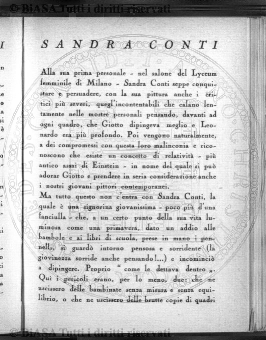 © BIASA Tutti i diritti riservati
SANDRA CONTI
Alla sua prima personale - nel salone del Lyceum
femminile di Milano - Sandra Conti seppe conqui-
stare e persuadere, con la sua pittura anche i cri-
tici più arcesi, quegl'incontentabili che calano len-
tamente nelle mostre personali pensando, davanti ad
ogni quadro, che Giotto dipingeva meglio e Leo-
nardo era più profondo. Poi vengono naturalmente,
dei compromessi con questa loro malinconia e rico-
noscono che esiste un concetto di relatività - più
antico assai di Einstein - in nome del quale si può
adorar Giotto e prendere in seria considerazione anche
i nostri giovani pittori contemporanei.
Ma tutto questo non c'entra con Sandra Conti, la
quale è una signorina giovanissima - poco più di una
fanciulla - che, a un certo punto della sua vita lu-
minosa come una primavera, dato un addio alle
bambole e ai libri di scuola, prese in mano i pen-
nelli, si guardò intorno pensosa e sorridente (la
giovinezza sorride anche pensando!...) e incominciò
a dipingere. Proprio "come le dettava dentro".
Qui i pericoli erano, per lo meno, due: che ne
uscissero delle bambinate senza misura e senza equi-
librio, o che ne uscissero delle brutte copie di quadri
© BIASA Tutti i diritti riservati